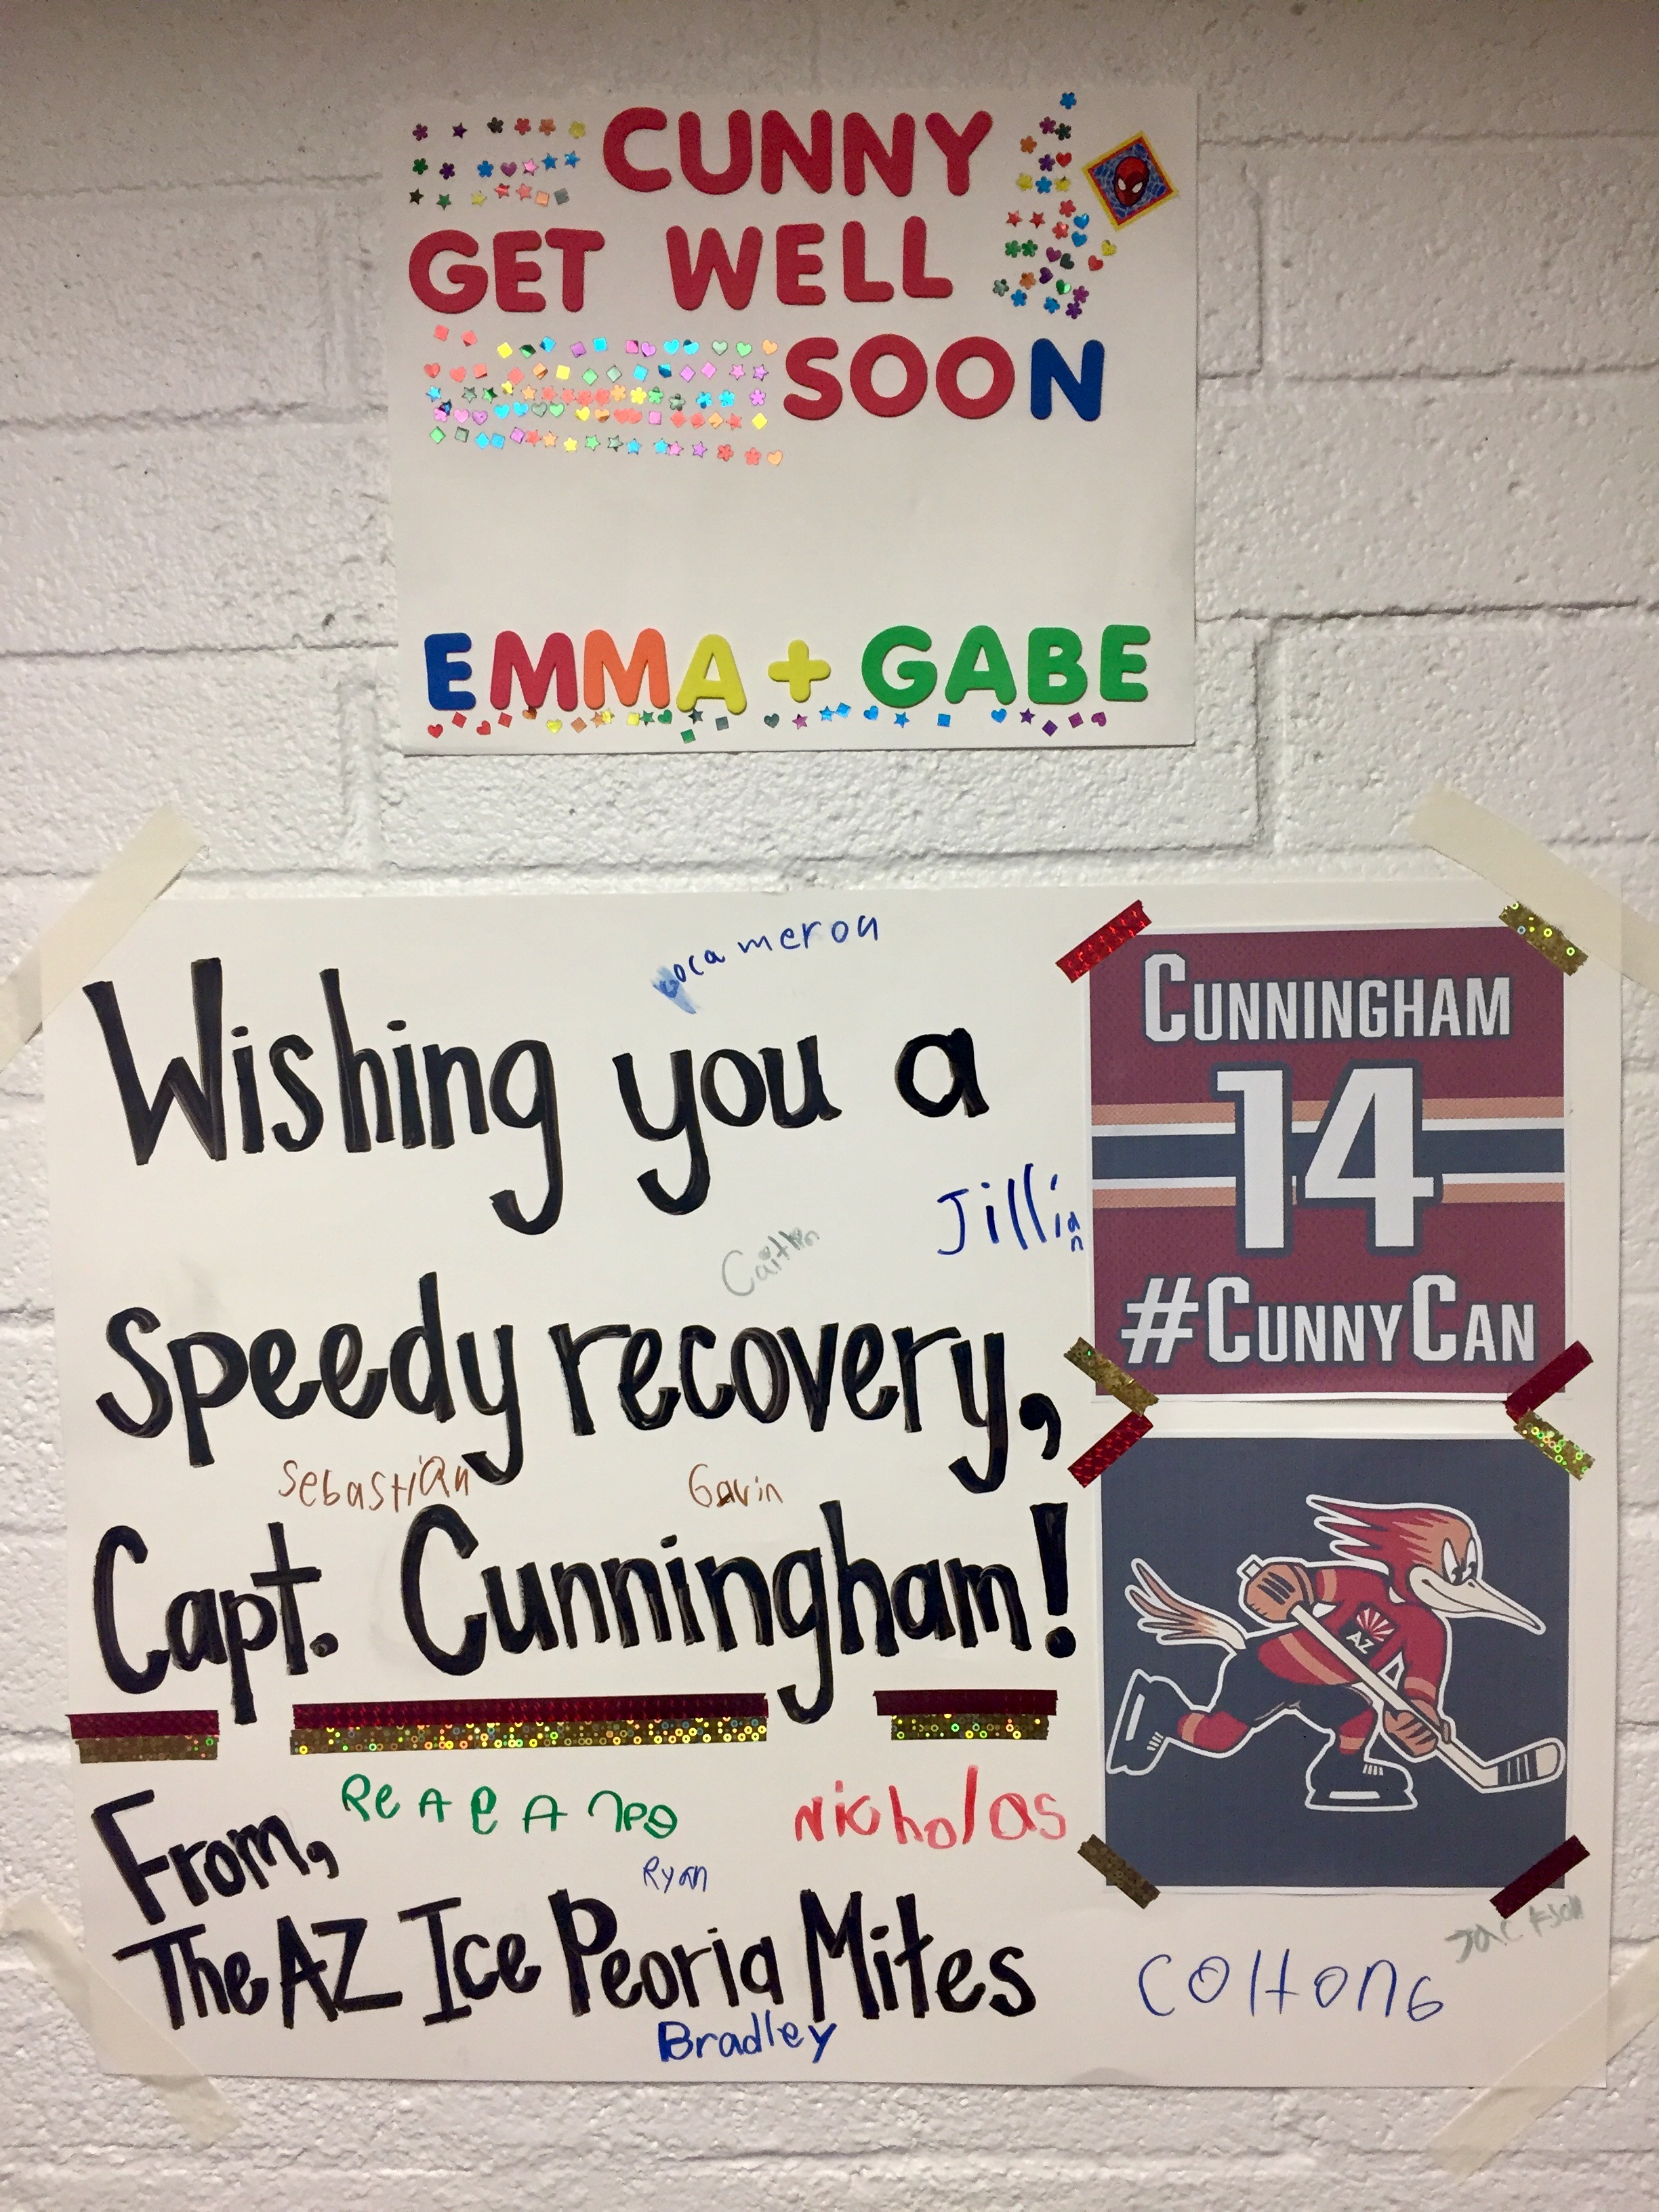 CUNNY
GET WELL
SOON
EMMA + GABE
cameron
Wishing you a
Jillian
Caitlin
Speedy recovery,
Sebastian
Gavin
Capt. Cunningham!
CUNNINGHAM
14
#CUNNYCAN
AZ
From,
Nicholas
Ryan
The AZ Ice Peoria Mites
Bradley
Jackson
Colton6